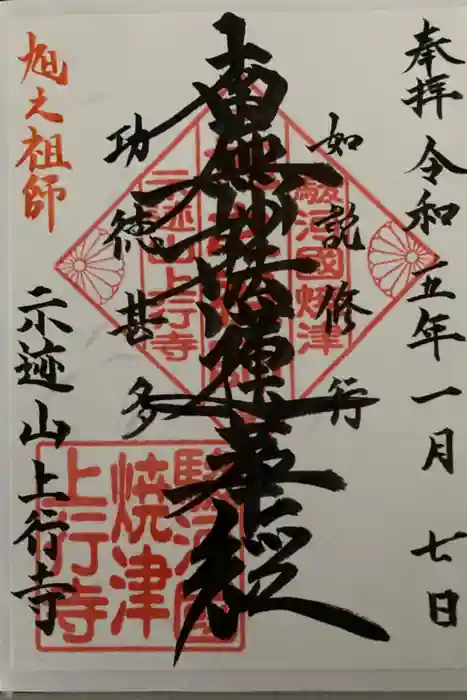 奉拝 令和五年一月 七日
如説修行
南無妙法蓮華経
功徳甚多
旭之祖師
示迹山上行寺
駿河國焼津
示迹山上行寺
駿河國
焼津
上行寺